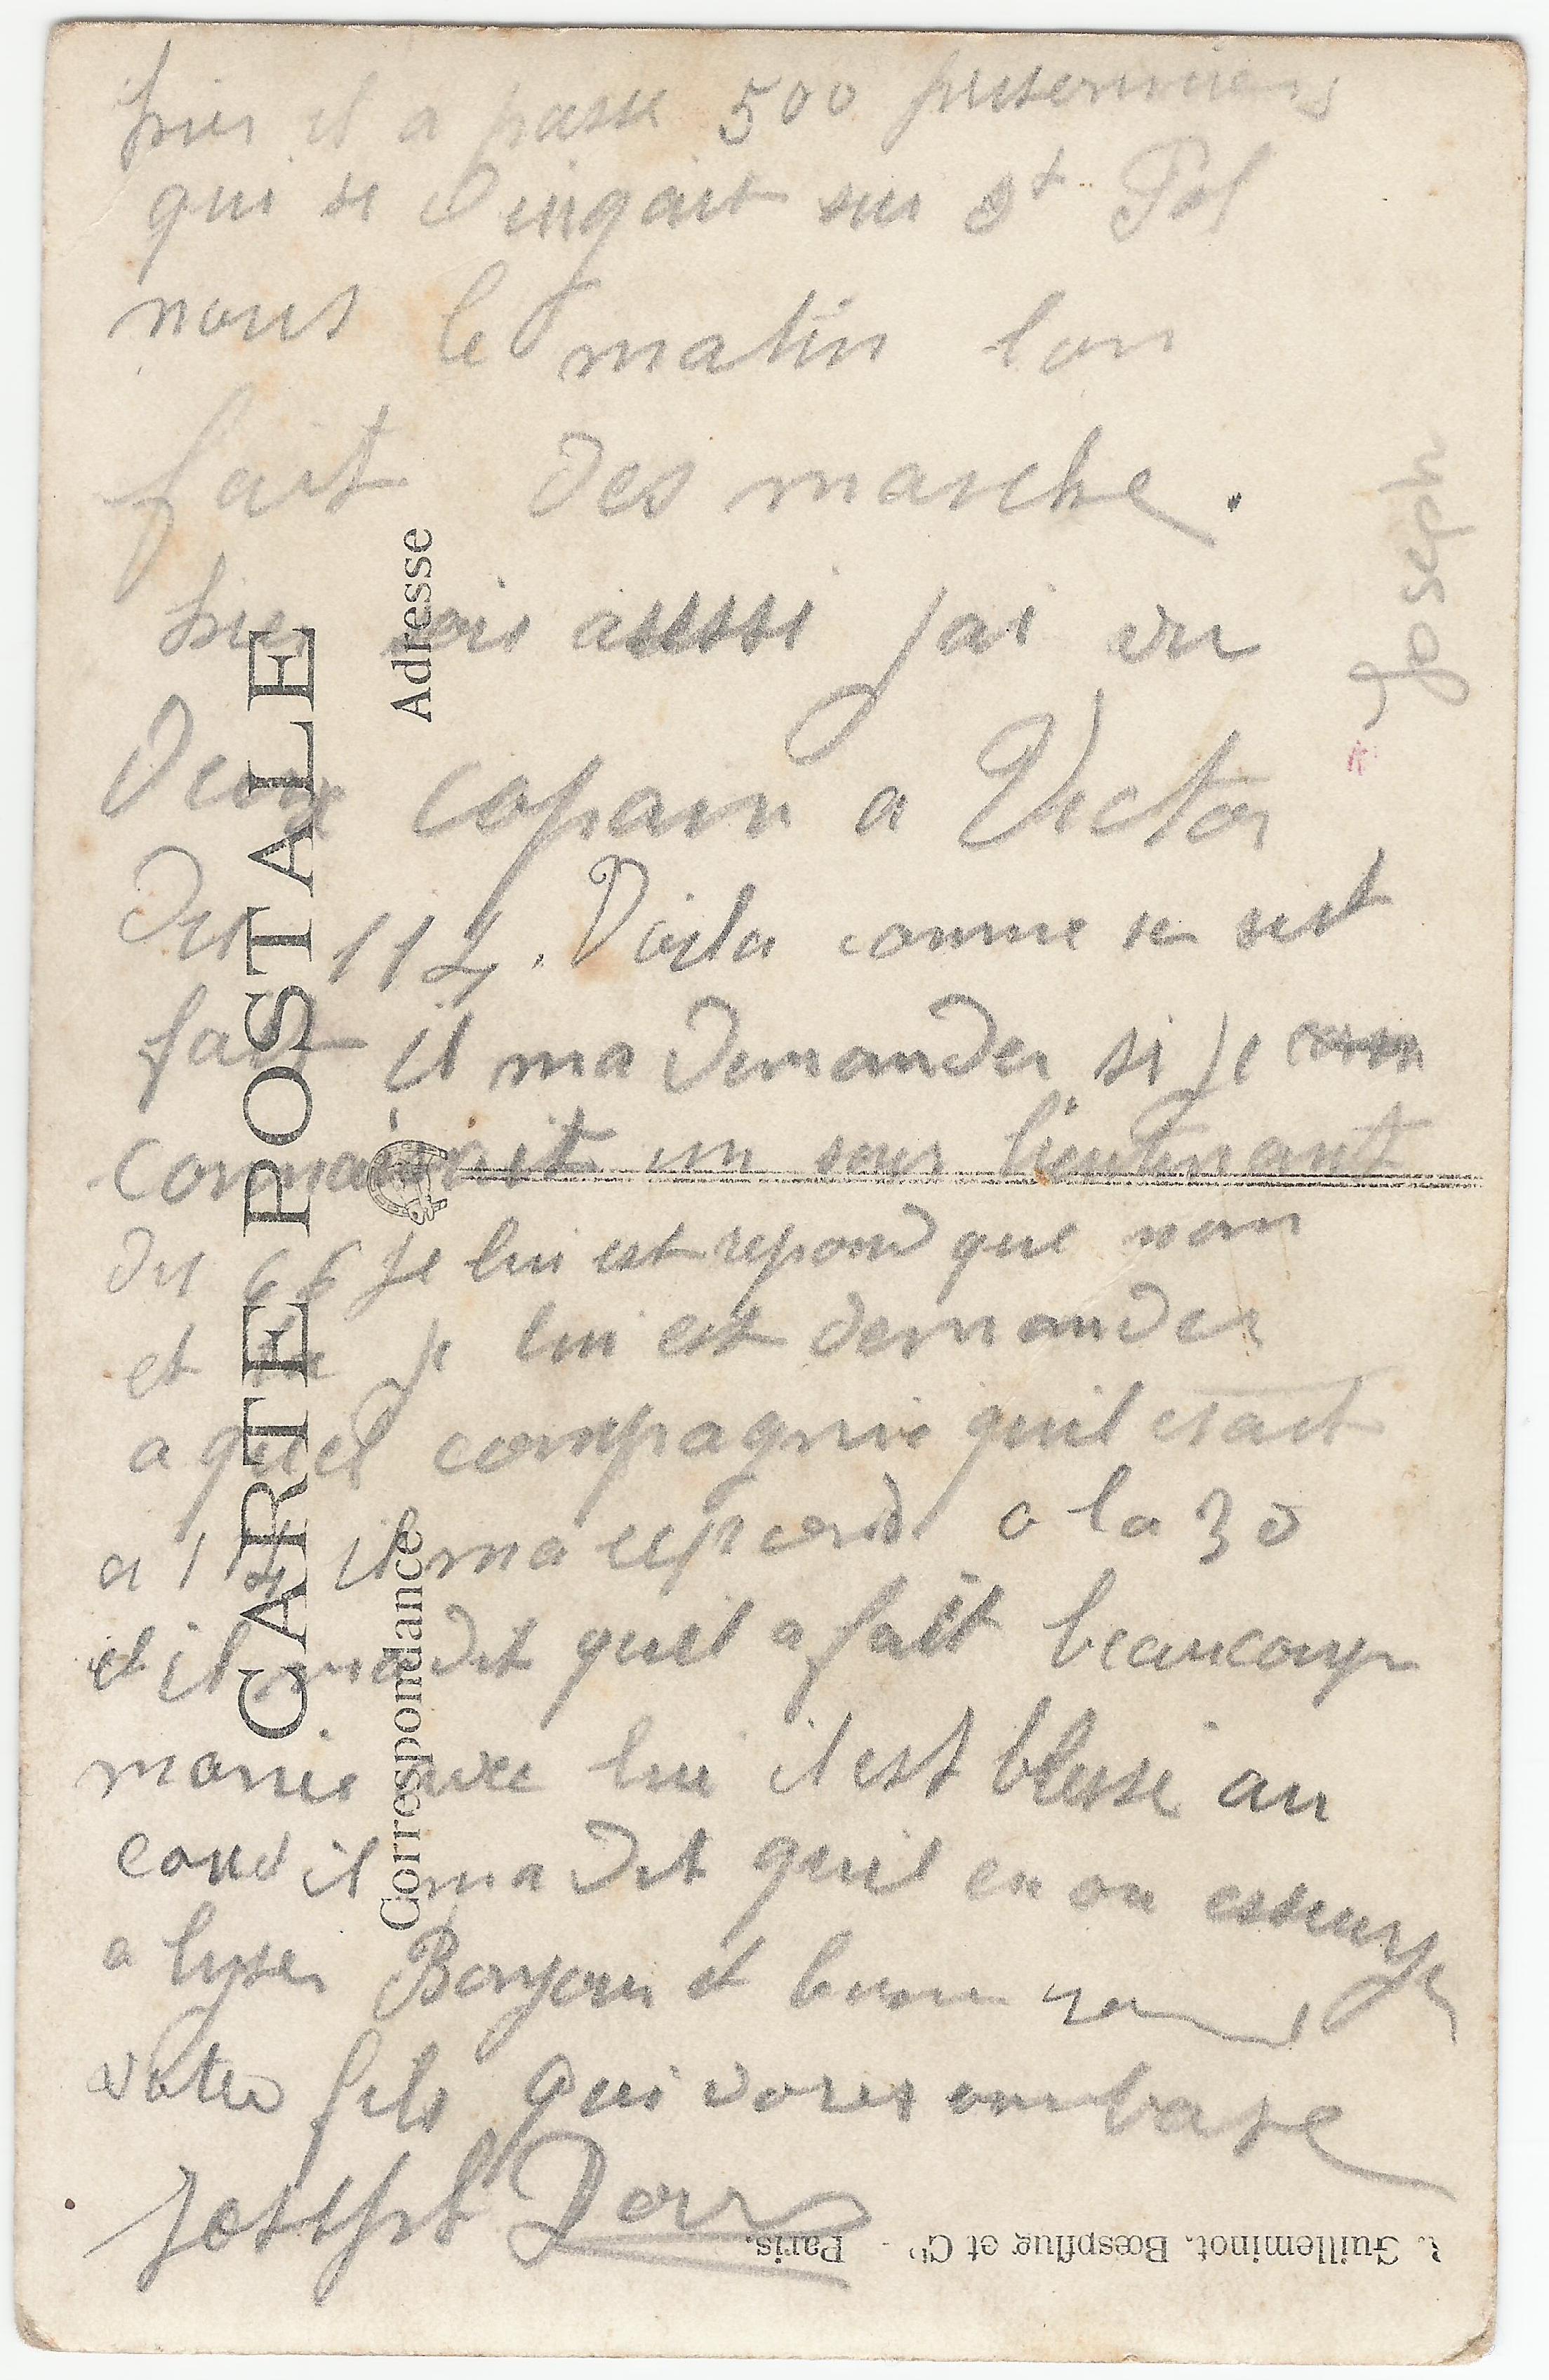 hier il a passe 500 prisonniers
qui se dirigait sur St Pol
nous le matin lon
fait des marche.
hier soir aussi jai vu
Deux copain a Victor
Du 114. Voila comme se sest
fait il ma demander si je
connaissait un sous lieutenant
du 66 je lui est repond que non
et je lui est demander
a quel compagnie quil etait
a 114 il ma repond a la 30
et il ma dit quil a fait beaucoup
avec lui il est blesse au
il ma dit quil en on
a Bonjour et
votre fils qui vous embrase
Joseph
Joseph
CARTE POSTALE
Correspondance
Adresse
Guilleminot, Bœspflug et Cie - Paris.